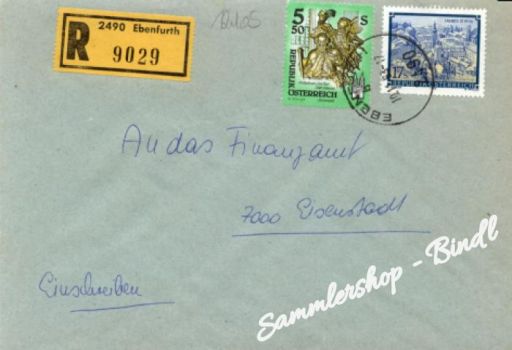 2490 Ebenfurth
R
9029
5 S
50
REPUBLIK
ÖSTERREICH
17
REPUBLIK ÖSTERREICH
An das Finanzamt
7000 Eisenstadt
Einschreiben
Sammlershop - Bindl